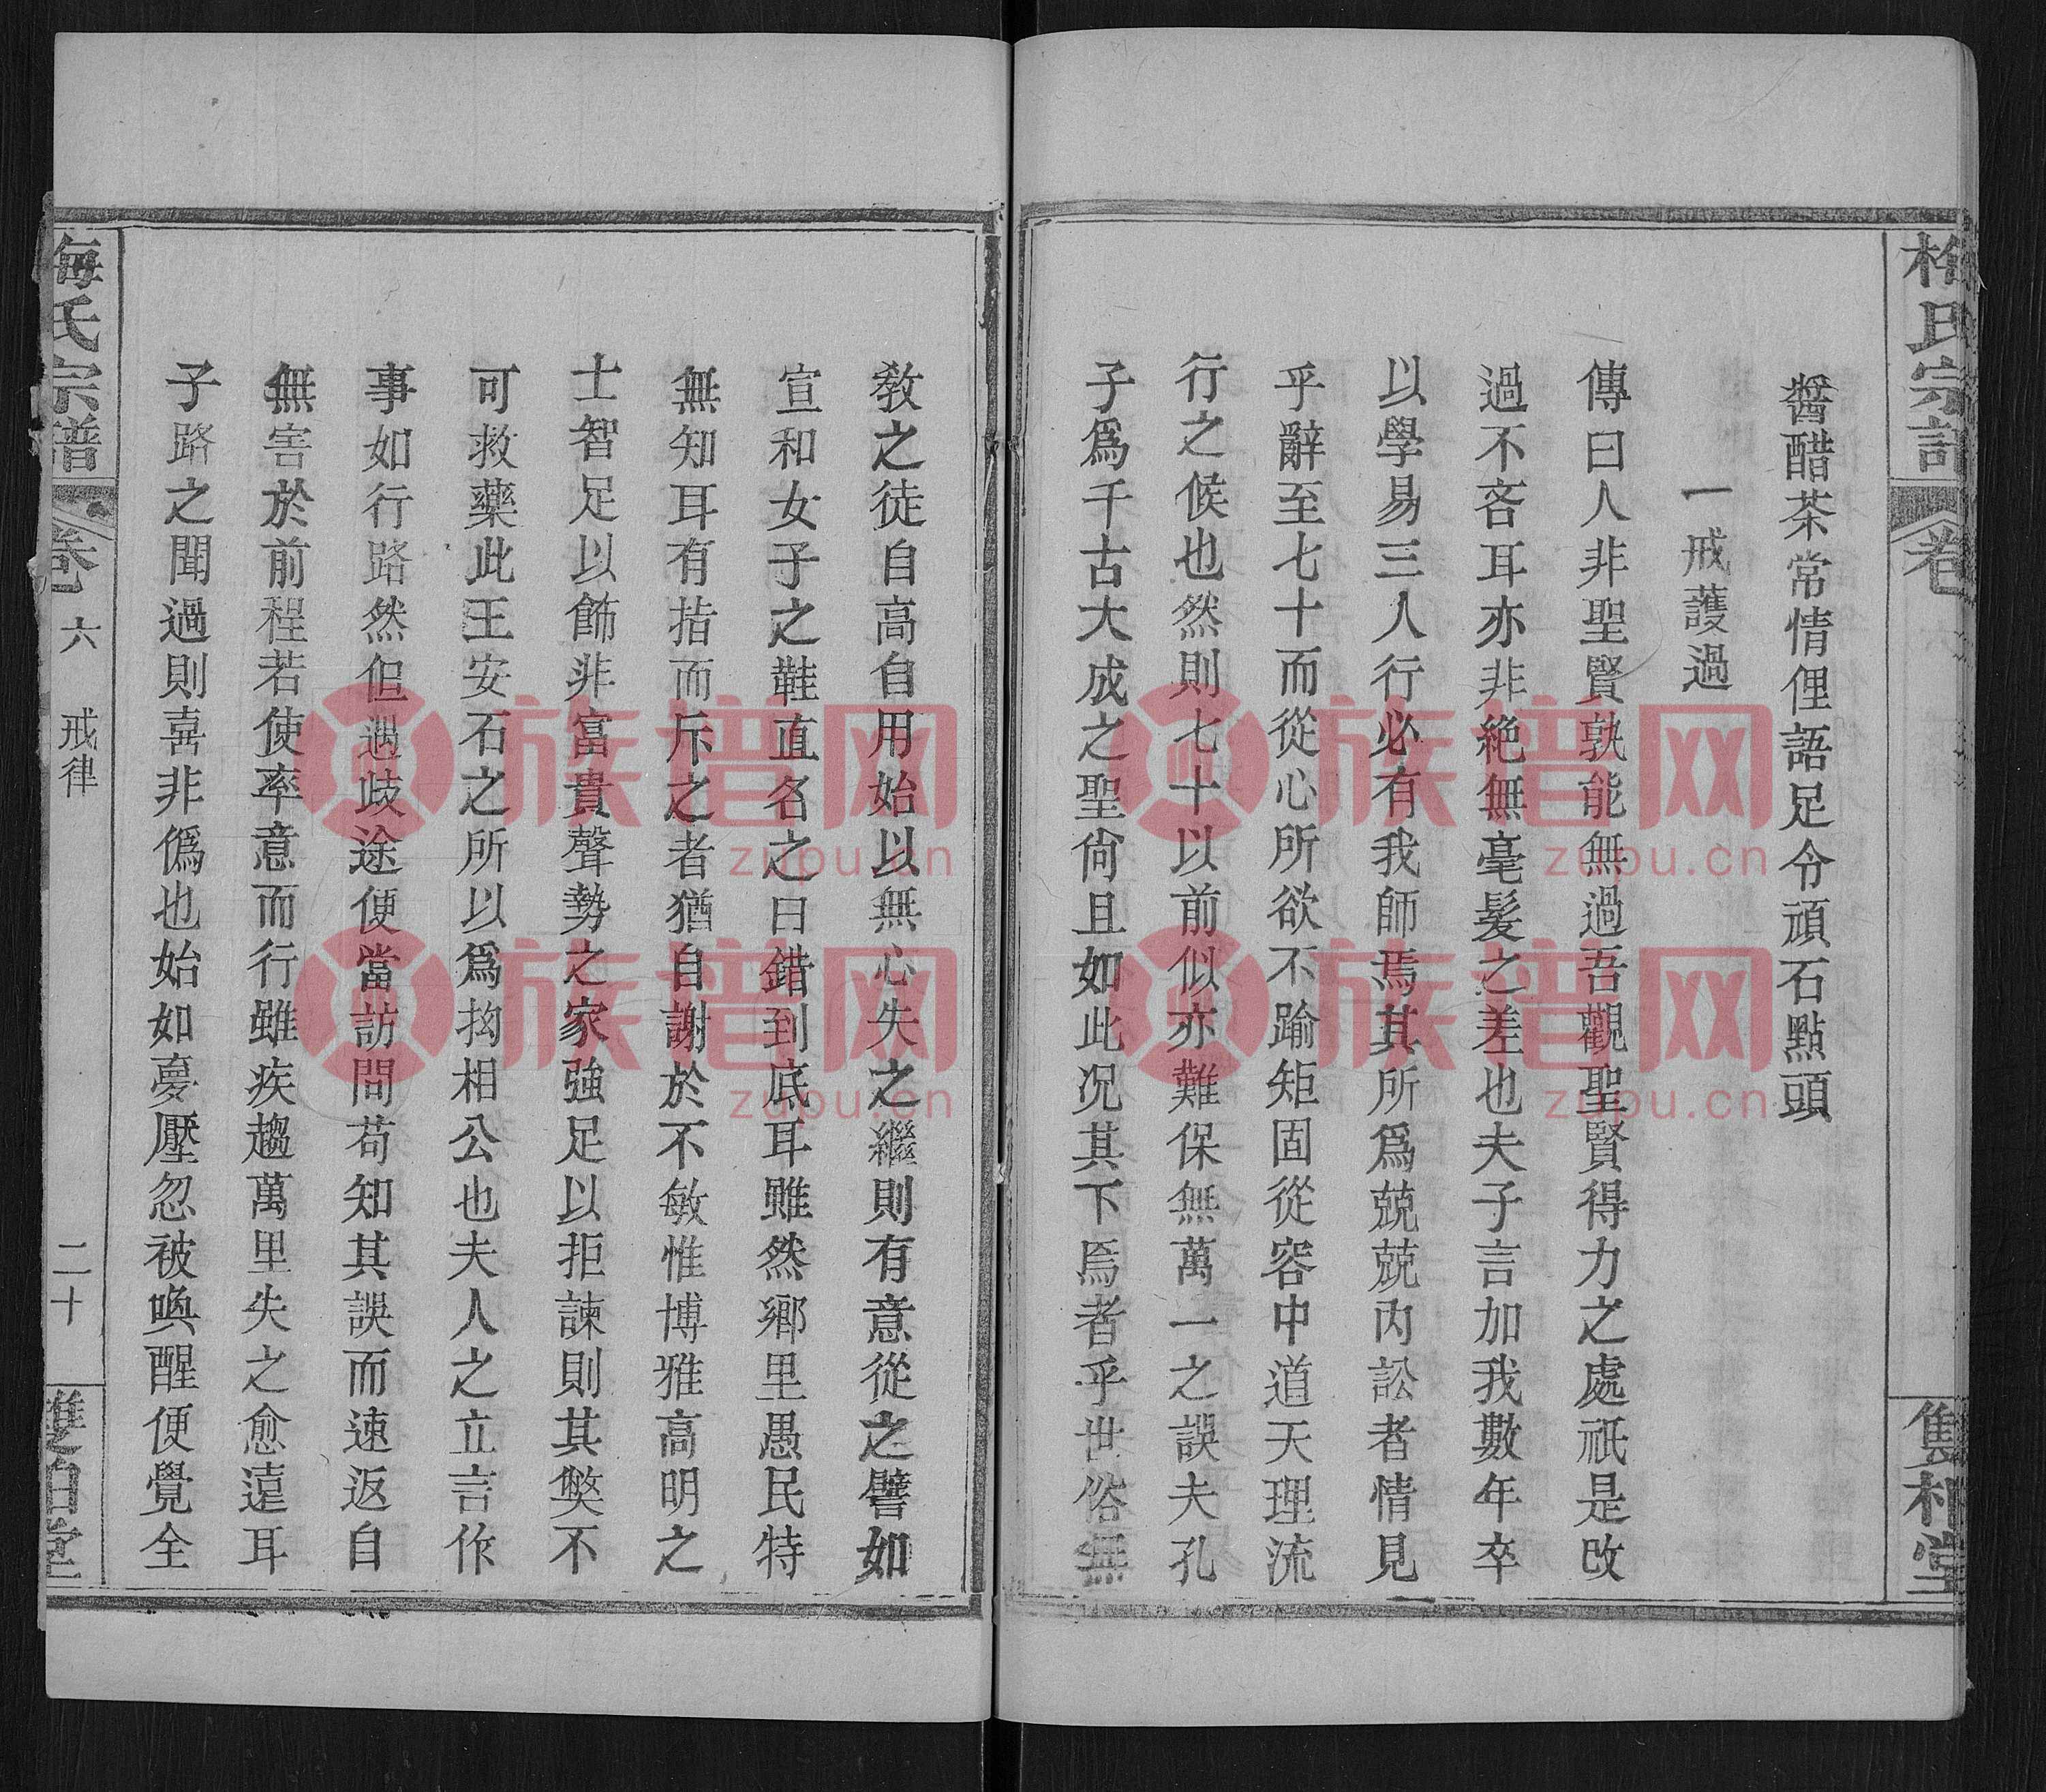 梅氏宗譜
卷
雙柏堂
醬醋茶常情俚語足令頑石點頭
一戒護過
傳曰人非聖賢孰能無過吾觀聖賢得力之處祇是改
過不吝耳亦非絕無毫髮之差也夫子言加我數年卒
以學易三人行必有我師焉其所爲兢兢內訟者情見
乎辭至七十而從心所欲不踰矩固從容中道天理流
行之候也然則七十以前似亦難保無萬一之誤夫孔
子爲千古大成之聖尙且如此况其下焉者乎世俗無
教之徒自高自用始以無心失之繼則有意從之譬如
宣和女子之鞋直名之曰錯到底耳雖然鄉里愚民特
無知耳有指而斥之者猶自謝於不敏惟博雅高明之
士智足以飾非富貴聲勢之家強足以拒諫則其獘不
可救藥此王安石之所以爲抝相公也夫人之立言作
事如行路然但遇歧途便當訪問苟知其誤而速返自
無害於前程若使率意而行雖疾趨萬里失之愈遠耳
子路之聞過則喜非僞也始如夢壓忽被喚醒便覺全
梅氏宗譜
卷
六
戒律
二十
雙柏堂
族譜网
zupu.cn
族譜网
zupu.cn
族譜网
zupu.cn
族譜网
zupu.cn